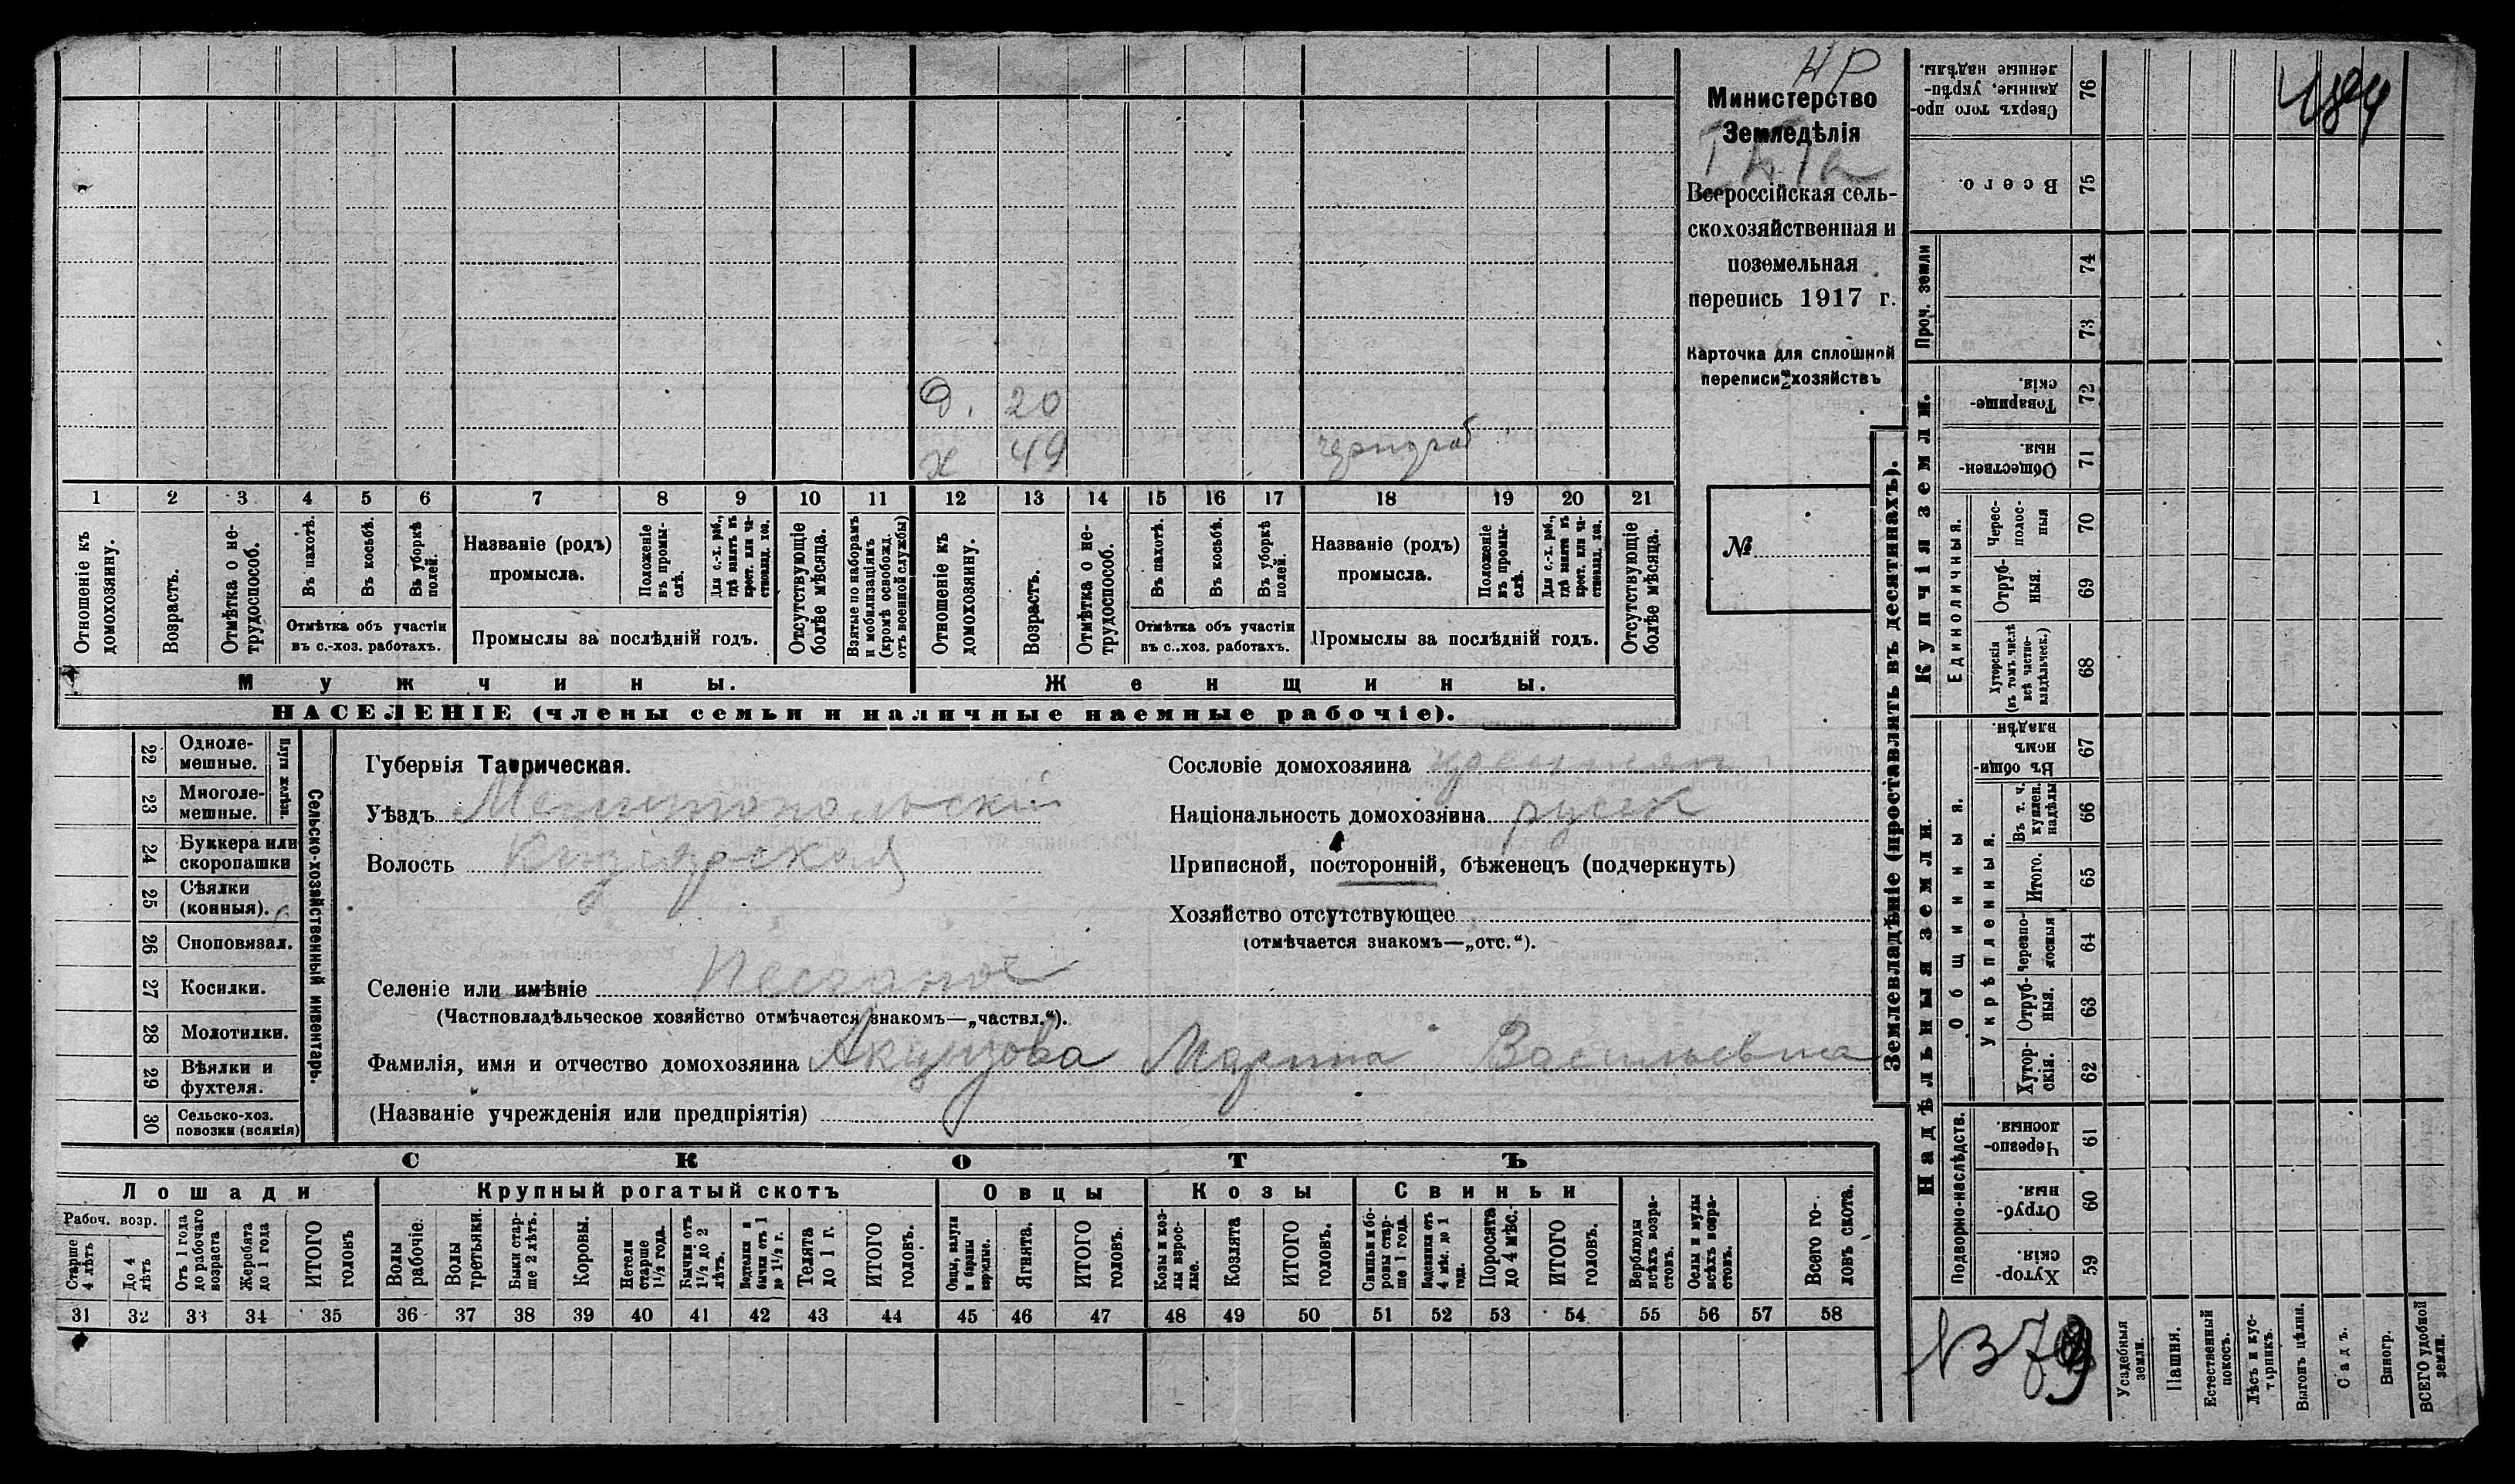 НР
Министерство
Земледѣлія
Всероссійская сель-
скохозяйственная и
поземельная
перепись 1917 г.
Карточка для сплошной
переписи хозяйствъ
№
Д. 20
х 49
1 2 3 4 5 6 7 8 9 10 11 12 13 14 15 16 17 18 19 20 21
Отношеніе къ домохозяину.
Возрастъ.
Отмѣтка о не-трудоспособ.
Въ пахотѣ.
Въ косьбѣ.
Въ уборкѣ полей.
Отмѣтка объ участіи
въ с.-хоз. работахъ.
Названіе (родъ)
промысла.
Положеніе въ промы-слѣ.
Для с.-х. раб., гдѣ занятъ въ крест. или ча-стновлад. хоз.
Промыслы за послѣдній годъ.
Отсутствующіе болѣе мѣсяца.
Взятые по наборамъ и мобилизаціямъ (кромѣ освобожд. отъ военной службы)
Отношеніе къ домохозяину.
Возрастъ.
Отмѣтка о не-трудоспособ.
Въ пахотѣ.
Въ косьбѣ.
Въ уборкѣ полей.
Отмѣтка объ участіи
въ с..хоз. работахъ.
Названіе (родъ)
промысла.
Положеніе въ промы-слѣ.
Для с.-х. раб., гдѣ занята въ крест. или ча-стновлад. хоз.
Промыслы за послѣдній годъ.
Отсутствующіе болѣе мѣсяца.
Мужчины.
Женщины.
НАСЕЛЕНІЕ (члены семьи и наличные наемные рабочіе).
22 Одноле-мешные.
23 Многоле-мешные.
Плуги желѣзн.
24 Буккера или скоропашки
25 Сѣялки (конныя).
26 Сноповязал.
27 Косилки.
28 Молотилки.
29 Вѣялки и фухтеля.
30 Сельско-хоз. повозки (всякія)
Сельско-хозяйственный инвентарь.
Губернія Таврическая.
Уѣздъ Мелитопольскій
Волость Кизіярская
Сословіе домохозяина крестьян.
Національность домохозяина русск
Приписной, посторонній, бѣженецъ (подчеркнуть)
Хозяйство отсутствующее
(отмѣчается знакомъ—„отс.“).
Селеніе или имѣніе Песчаное
(Частновладѣльческое хозяйство отмѣчается знакомъ—„частвл.“).
Фамилія, имя и отчество домохозяина Акунцова Марина Васильевна
(Названіе учрежденія или предпріятія)
СКОТЪ
Лошади
Крупный рогатый скотъ
Овцы
Козы
Свиньи
Рабоч. возр.
Старше 4 лѣтъ
До 4 лѣтъ
Отъ 1 года до рабочаго возраста
Жеребата до 1 года
ИТОГО головъ
Волы рабочіе.
Волы третьяки.
Быки стар-ше 2 лѣтъ.
Коровы.
Нетели старше 1½ года.
Бычки отъ 1½ до 2 лѣтъ.
Подтелки и бычки отъ 1 до 1½ г.
Телята до 1 г.
ИТОГО головъ.
Овцы, валухи и бараны взрослые.
Ягнята.
ИТОГО головъ.
Козы и коз-лы взрос-лые.
Козлята
ИТОГО головъ.
Свиньи и бо-ровы стар-ше 1 года.
Подсвинки отъ 4 мѣс. до 1 года.
Поросята до 4 мѣс.
ИТОГО головъ.
Верблюды всѣхъ возра-стовъ.
Ослы и мулы всѣхъ возра-стовъ.
Всего го-ловъ скота.
31 32 33 34 35 36 37 38 39 40 41 42 43 44 45 46 47 48 49 50 51 52 53 54 55 56 57 58
Землевладѣніе (проставлять въ десятинахъ).
Купчія земли.
Надѣльныя земли.
Сверхъ того про-данные, укрѣп-ленные надѣлы. 76
Всего. 75
Проч. земли
74
73
Товарище-скія. 72
Обществен-ныя. 71
Единоличныя.
Черес-полос-ныя 70
Отруб-ныя. 69
Хуторскія (въ томъ числѣ всѣ частно-владѣльческ.) 68
Общинныя.
Въ общи-номъ владѣн. 67
Укрѣпленныя.
Въ т. ч. куплен. надѣлы 66
Итого. 65
Черезпо-лосныя 64
Отруб-ныя. 63
Хутор-скія. 62
Подворно-наслѣдств.
Черезпо-лосныя. 61
Отруб-ныя. 60
Хутор-скія. 59
Усадебныя земли.
Пашня.
Естественный покосъ.
Лѣсъ и кус-тарникъ.
Выгонъ цѣлин.
Садъ.
Виногр.
ВСЕГО удобной земли.